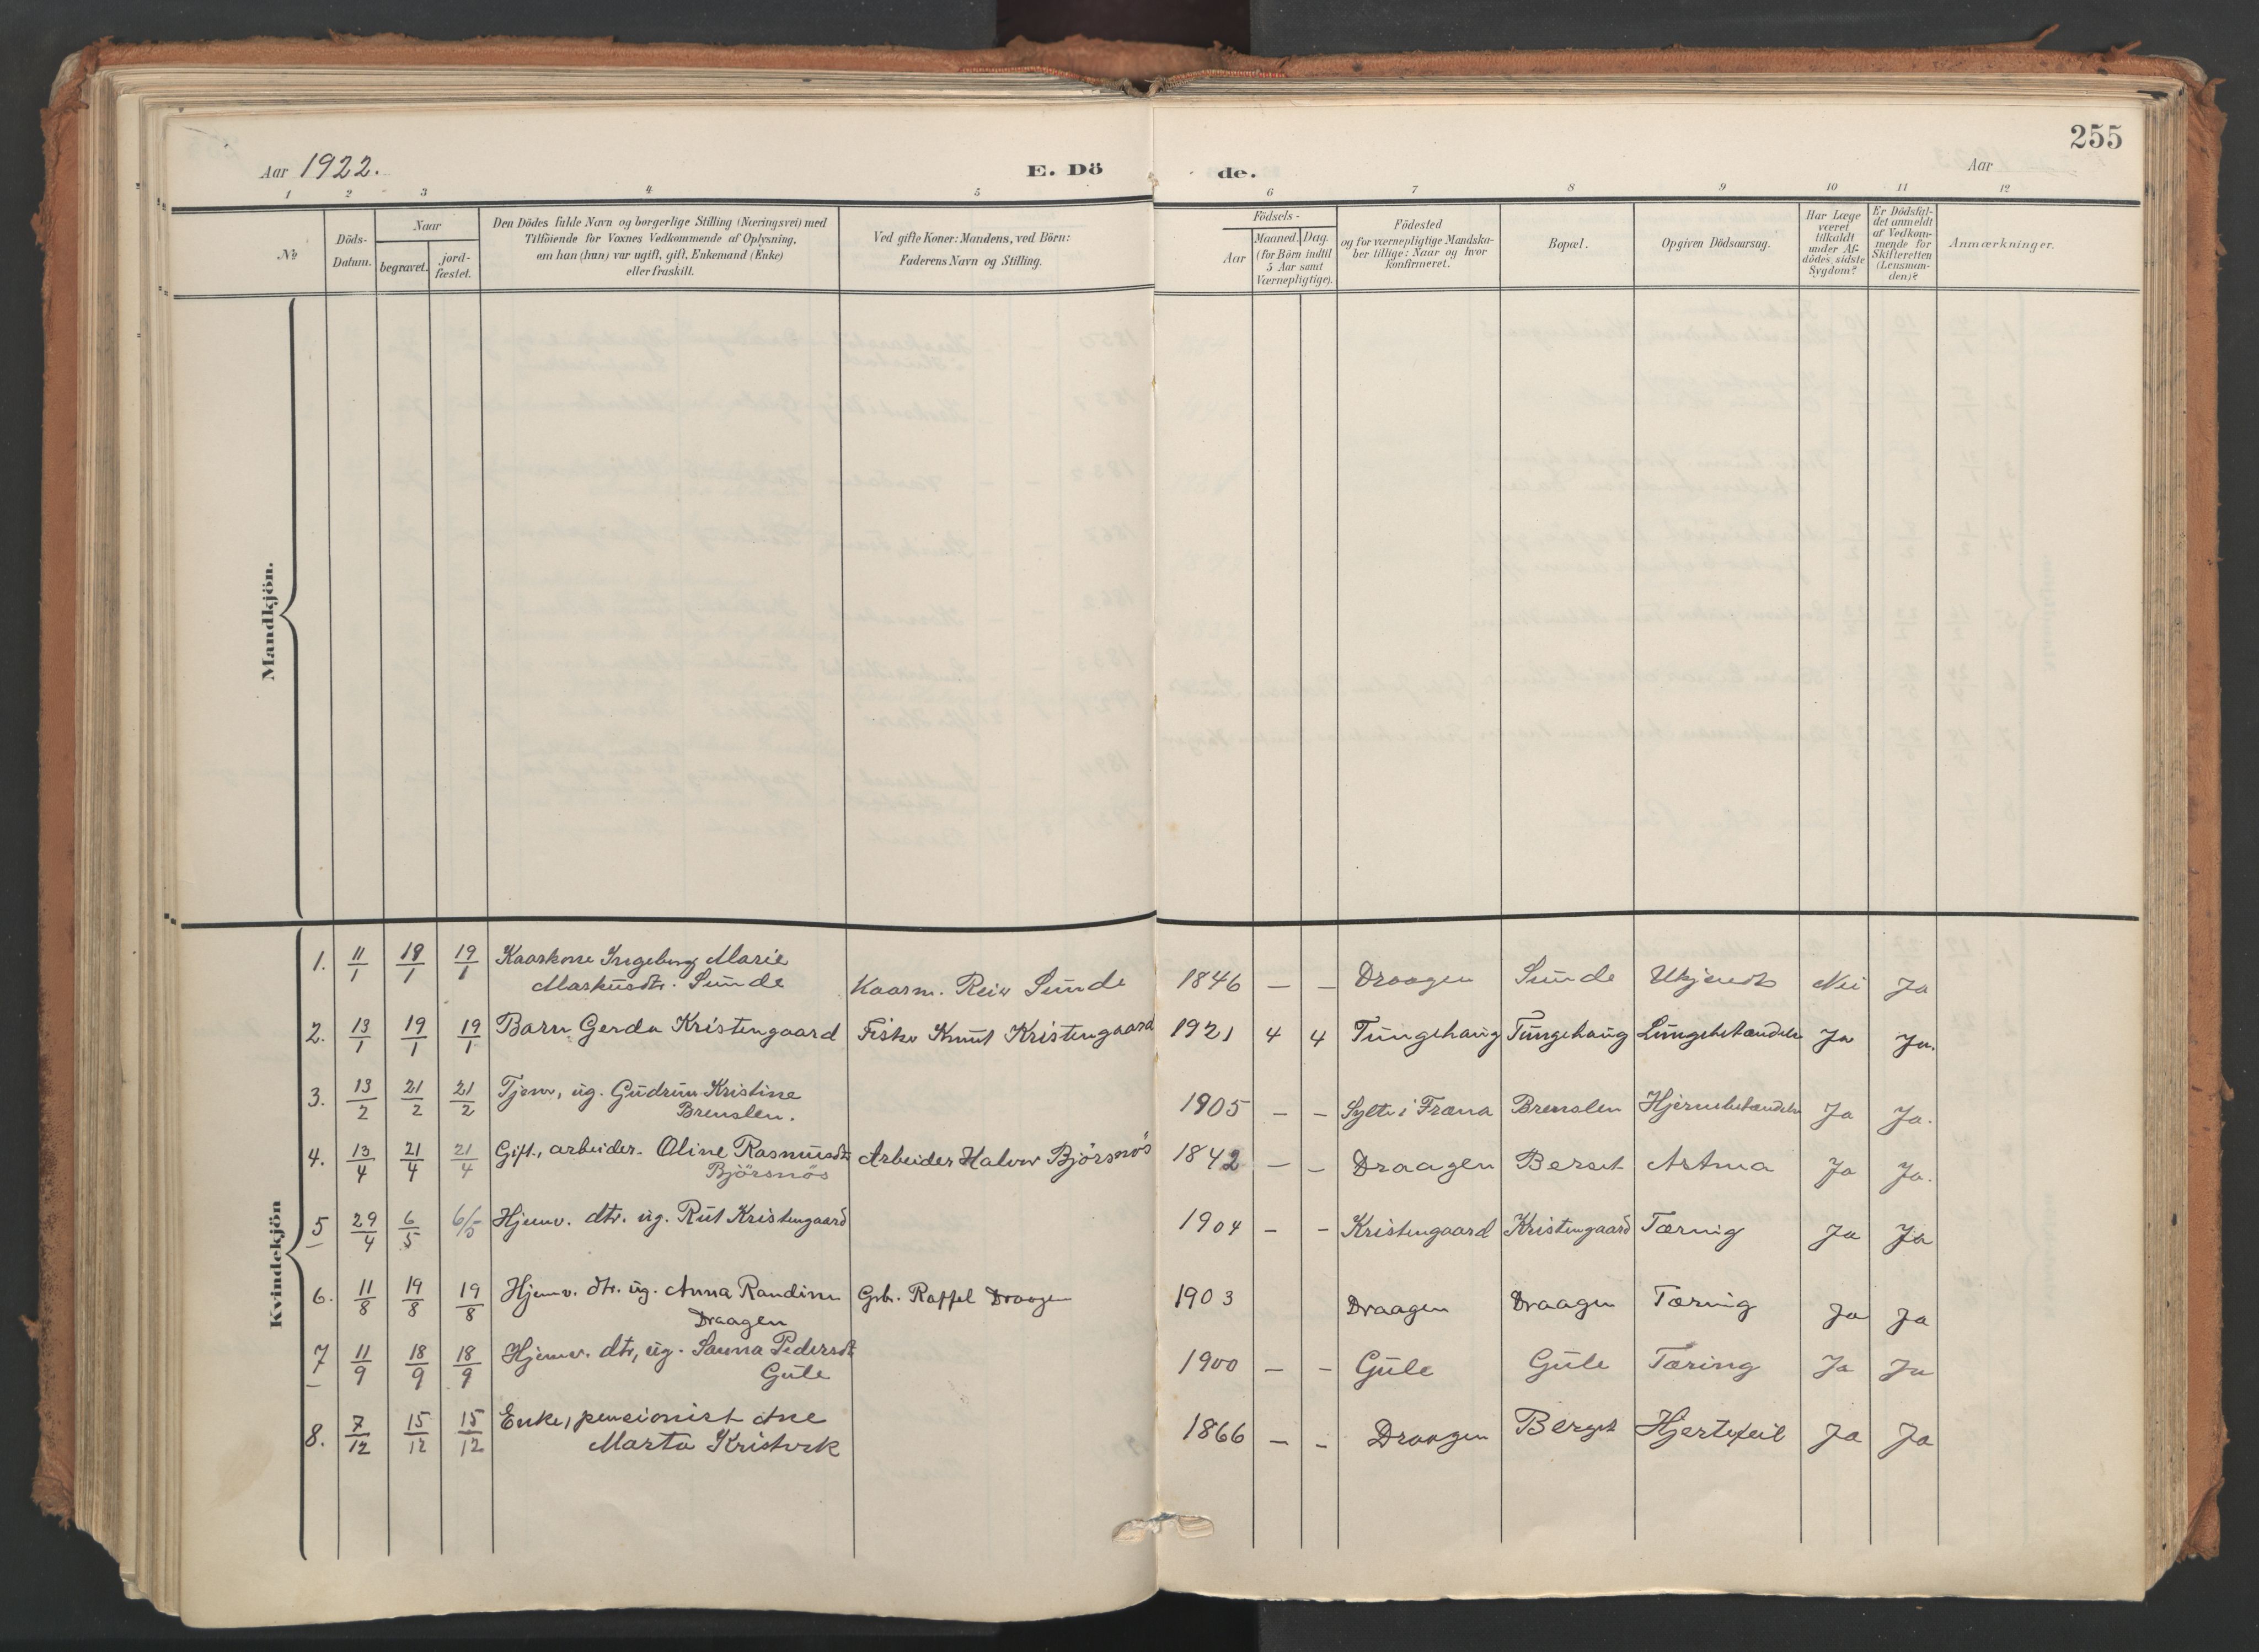 255
Aar 1922.
E. Dö de.
Aar
1 2 3 4 5 6 7 8 9 10 11 12
№
Döds-
Datum.
Naar
begravet.
jord-
fæstet.
Den Dödes fulde Navn og borgerlige Stilling (Næringsvei) med
Tilföiende for Voxnes Vedkommende af Oplysning,
om han (hun) var ugift, gift, Enkemand (Enke)
eller fraskilt.
Ved gifte Koner: Mandens, ved Börn:
Faderens Navn og Stilling.
Födsels-
Aar
Maaned. Dag.
(for Börn indtil
5 Aar samt
Værnepligtige).
Födested
og for værnepligtige Mandska-
ber tillige: Naar og hvor
konfirmeret.
Bopæl.
Opgiven Dödsaarsag.
Har Læge
været
tilkaldt
under Af-
dödes sidste
Sygdom?
Er Dödsfal-
det anmeldt
af Vedkom-
mende for
Skifteretten
(Lensman-
den)?
Anmærkninger.
Mandkjön.
Kvindekjön
1. 11/1 19/1 19/1 Kaarkone Ingeborg Marie
Markusdtr. Sunde Kaarm. Reir Sunde 1846 – – Draagen Sunde Ukjendt Nei Ja
2. 13/1 19/1 19/1 Barn Gerda Kristengaard Fisker Knut Kristengaard 1921 4 4 Tungehaug Tungehaug Lungebetændelse Ja Ja.
3. 13/2 21/2 21/2 Tjen., ug. Gudrun Kristine
Brenslen. 1905 – – Sylte i Fræna Brenslen Hjernebetændelse Ja Ja.
4. 13/4 21/4 21/4 Gift, arbeider. Oline Rasmusdtr
Björsnös Arbeider Halvor Björsnös 1842 – – Draagen Berset Astma Ja Ja.
5 29/4 6/5 6/5 Hjemv. dtr. ug. Rut Kristengaard 1904 – – Kristengaard Kristengaard Tæring Ja Ja
6. 11/8 19/8 19/8 Hjemv. dtr. ug. Anna Randine
Draagen Grb. Raffel Draagen 1903 Draagen Draagen Tæring Ja Ja
7 11/9 18/9 18/9 Hjemv. dtr, ug. Pedersdt
Gule 1900 – – Gule Gule Tæring Ja Ja
8. 7/12 15/12 15/12 Enke, pensionist Ane
Marta 1866 – – Draagen Berset Hjertefeil Ja Ja